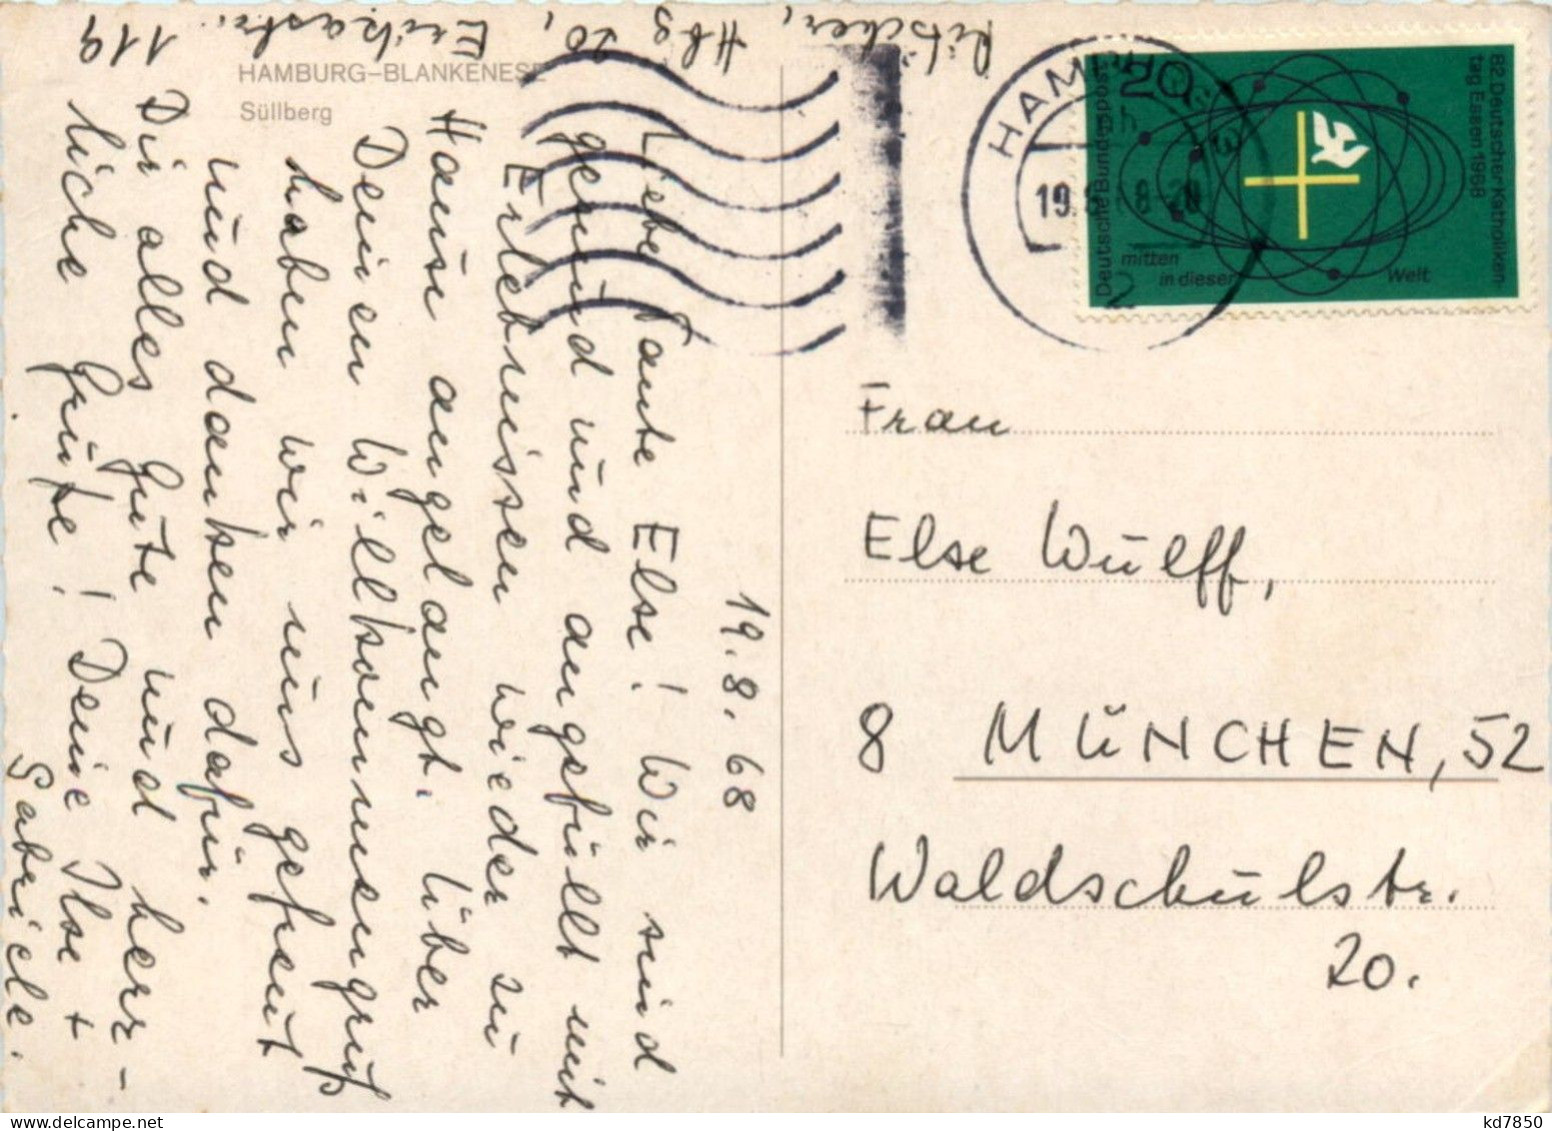 Ritscher, Hbg 20, Erikastr. 119
HAMBURG-BLANKENESE
Süllberg
19. 8. 68
Liebe Tante Else! Wir sind
gesund und angefüllt mit
Erlebnissen wieder zu
Hause angelangt. Über
Deinen Willkommensgruß
haben wir uns gefreut
und danken dafür.
Dir alles Gute und herz-
liche Grüße! Deine Ilse +
Gabriele.
HAMBURG
19.8.68-20
2
Deutsche Bundespost
20
82. Deutscher Katholiken-
tag Essen 1968
mitten
in dieser Welt
Frau
Else Wulff,
8 MÜNCHEN, 52
Waldschulstr.
20.
kd7850